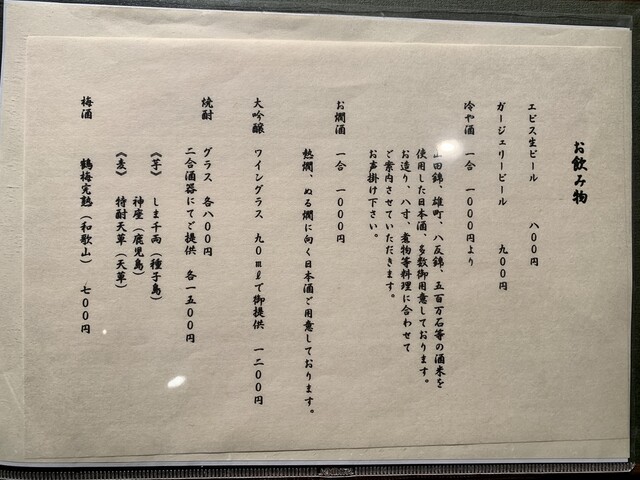 お飲み物
エビス生ビール 八００円
ガージェリービール 九００円
冷や酒 一合 一０００円より
山田錦、雄町、八反錦、五百万石等の酒米を
使用した日本酒、多数御用意しております。
お造り、八寸、煮物等料理に合わせて
ご案内させていただきます。
お声掛け下さい。
お燗酒 一合 一０００円
熱燗、ぬる燗に向く日本酒ご用意しております。
大吟醸 ワイングラス 九０㎖で御提供 一二００円
焼酎 グラス 各八００円
二合酒器にてご提供 各一五００円
《芋》 しま千両（種子島）
神座（鹿児島）
《麦》 特酎天草（天草）
梅酒 鶴梅完熟（和歌山） 七００円